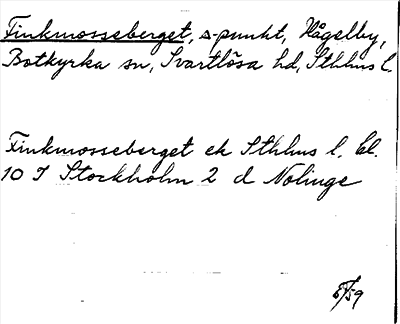 Finkmosseberget, s-punkt, Hågelby,
Botkyrka sn, Svartlösa hd, Sthlms l.
Finkmosseberget ek Sthlms l. bl.
10 I Stockholm 2 d Nolinge